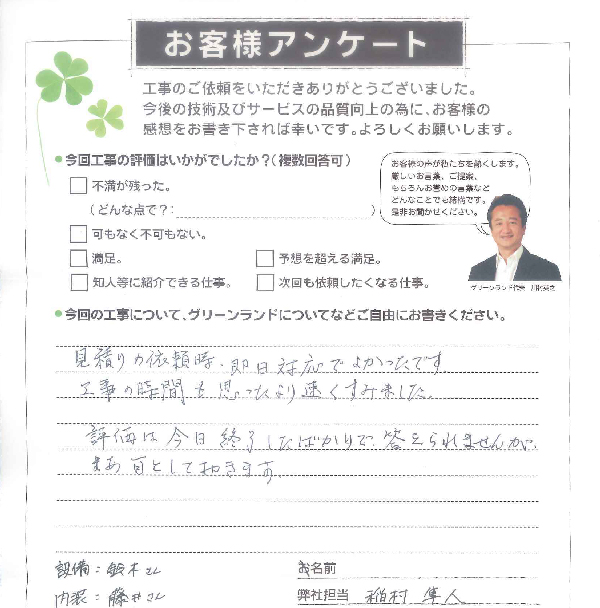 お客様アンケート
工事のご依頼をいただきありがとうございました。
今後の技術及びサービスの品質向上の為に、お客様の
感想をお書き下されば幸いです。よろしくお願いします。
●今回工事の評価はいかがでしたか?(複数回答可)
お客様の声が私たちを熱くします。
厳しいお言葉、ご提案、
もちろんお誉めの言葉など
どんなことでも結構です。
是非お聞かせください。
不満が残った。
(どんな点で?: )
可もなく不可もない。
満足。
予想を超える満足。
知人等に紹介できる仕事。
次回も依頼したくなる仕事。
グリーンランド代表
●今回の工事について、グリーンランドについてなどご自由にお書きください。
見積りの依頼時、即日対応でよかったです
工事の時間も思ったより速くすみました。
評価は今日終了したばかりで、答えられませんが、
まあ可として頂きます。
設備:鈴木さん
お名前
内装:藤井さん
弊社担当 稲村 隼人